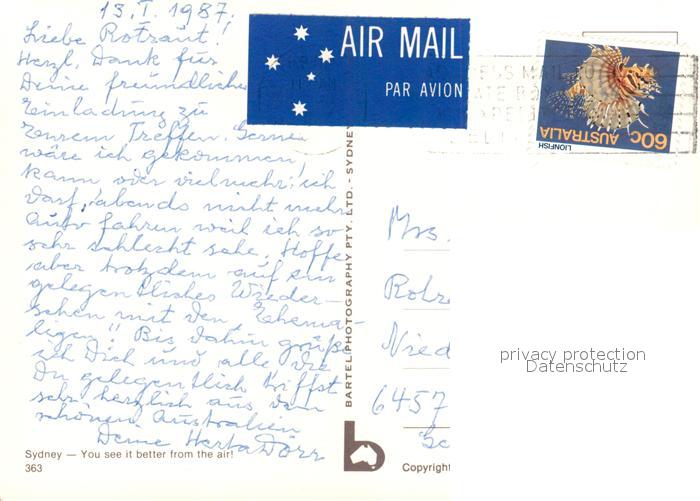 13.I.1987.
Liebe Rotraut!
Herzl. Dank für
Deine freundliche
Einladung zu
Eurem Treffen. Gerne
wäre ich gekommen!
kann oder vielmehr: ich
darf abends nicht mehr
Auto fahren weil ich so
sehr schlecht sehe. Hoffe
aber trotzdem auf ein
gelegentliches Wieder-
sehen mit den "Ehema-
ligen"! Bis dahin grüße
ich Dich und alle die
Du gelegentlich triffst
sehr herzlich aus dem
schönen Australien
Deine Herta Dörr
Sydney — You see it better from the air!
363
AIR MAIL
PAR AVION
BARTEL PHOTOGRAPHY PTY. LTD. - SYDNEY
b
Copyright
LIONFISH
AUSTRALIA
60c
Mrs.
Nied
6457
privacy protection
Datenschutz